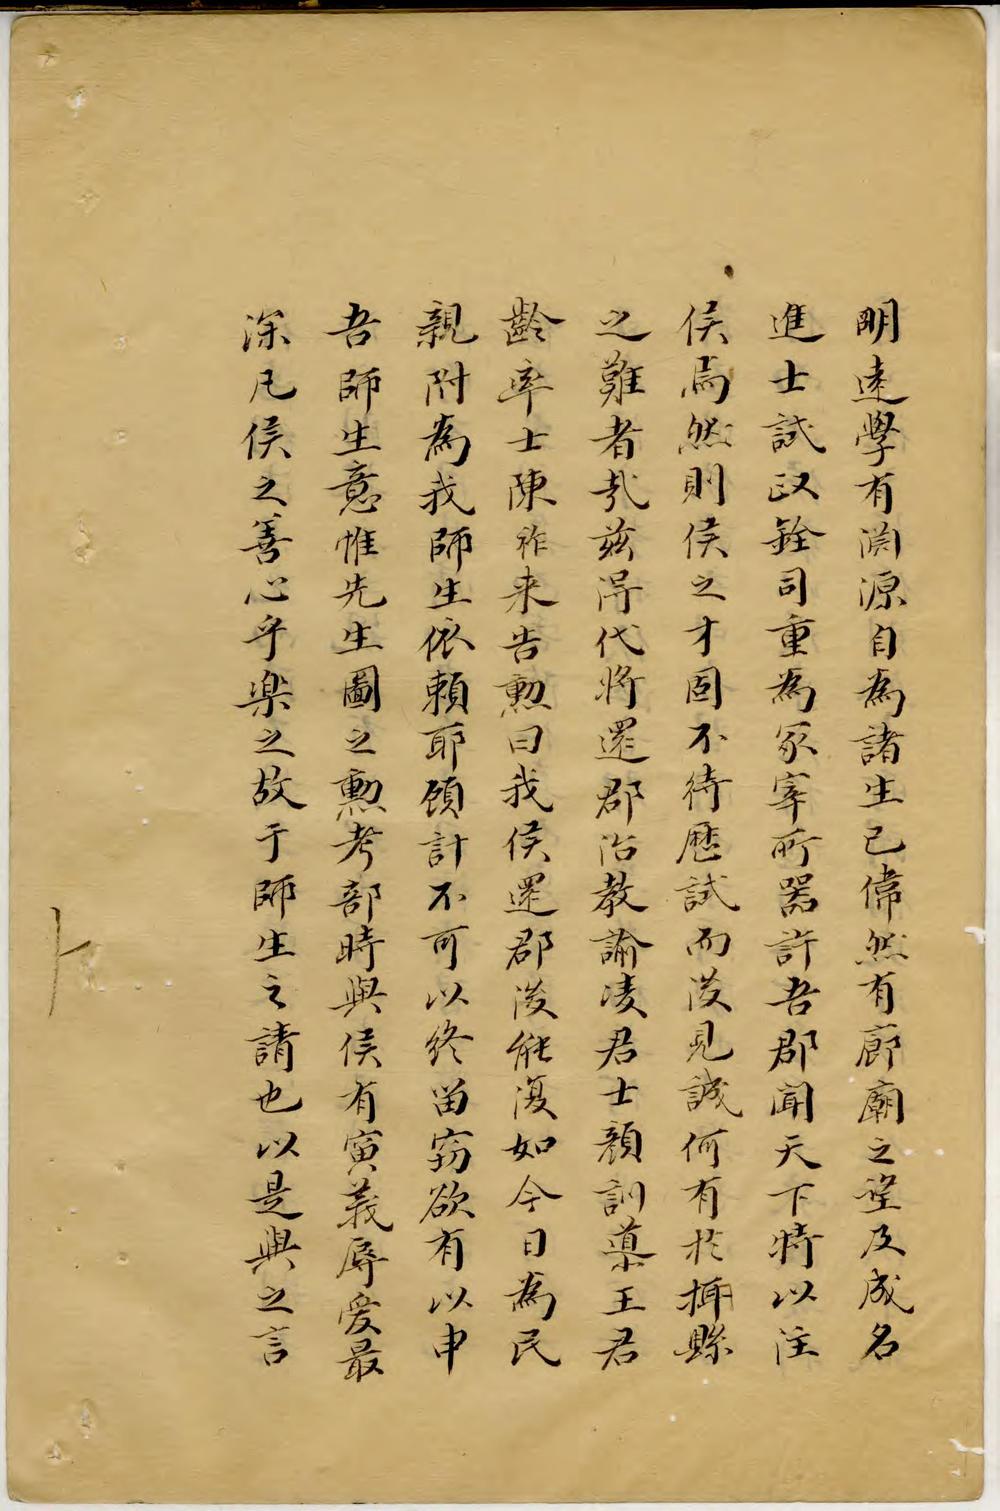 明達學有淵源自為諸生已偉然有廊廟之望及成名
進士試政銓司重為冢宰所器許吾郡聞天下特以注
侯焉然則侯之才固不待歷試而後見誠何有於掛縣
之難者哉茲淂代將還郡治教諭凌君士顏訓導王君
齡率士陳祚来告勲曰我侯還郡後能復如今日為民
親附為我師生依賴耶顧計不可以終留竊欲有以申
吾師生意惟先生圖之勲考部時與侯有寅義辱愛最
深凡侯之善心乎樂之故于師生之請也以是與之言